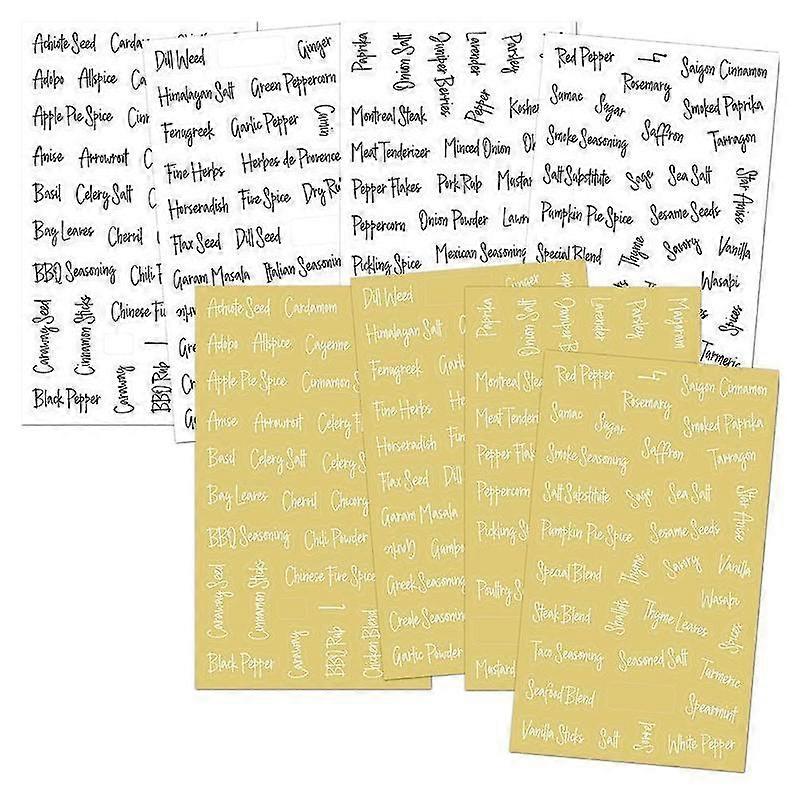 Achiote Seed
Adobo Allspice
Apple Pie Spice
Anise Arrowroot
Basil Celery Salt
Bay Leaves Cherril
BBQ Seasoning
Caraway Seed Cinnamon Sticks Chinese
Black Pepper Caraway BBQ Rub
Dill Weed Ginger
Himalayan Salt Green Peppercorn
Fenugreek Garlic Pepper
Fine Herbs Herbes de Provence
Horseradish Five Spice
Flax Seed Dill Seed
Garam Masala Italian Seasoning
Paprika Onion Salt Juniper Berries Lavender Pepper Parsley
Montreal Steak
Meat Tenderizer Minced Onion
Pepper Flakes Pork Rub
Peppercorn Onion Powder
Pickling Spice Mexican Seasoning
Red Pepper Rosemary Saigon Cinnamon
Sumac Sugar Smoked Paprika
Smoke Seasoning Saffron Tarragon
Salt Substitute Sage Sea Salt Star Anise
Pumpkin Pie Spice Sesame Seeds
Special Blend Thyme Savory Vanilla
Wasabi
Spices
Turmeric
Achiote Seed Cardamom
Adobo Allspice Cayenne
Apple Pie Spice Cinnamon
Anise Arrowroot Celery
Basil Celery Salt Celery
Bay Leaves Cherril Chicory
BBQ Seasoning Chili Powder
Caraway Seed Cinnamon Sticks Chinese Five Spice
Black Pepper Caraway BBQ Rub Chicken Blend
Dill Weed Ginger
Himalayan Salt
Fenugreek
Fine Herbs
Horseradish
Flax Seed Dill
Garam Masala
Garlic Gumbo
Greek Seasoning
Creole Seasoning
Garlic Powder
Paprika Onion Salt Lavender Parsley Marjoram
Montreal Steak
Meat Tenderizer
Pepper
Peppercorn
Pickling
Poultry
Mustard
Red Pepper Rosemary Saigon Cinnamon
Sumac Sugar Smoked Paprika
Smoke Seasoning Saffron Tarragon
Salt Substitute Sage Sea Salt Star Anise
Pumpkin Pie Spice Sesame Seeds
Special Blend Thyme Savory Vanilla
Wasabi
Steak Blend Shallots Thyme Leaves Spices
Taco Seasoning Seasoned Salt Turmeric
Seafood Blend Spearmint
Vanilla Sticks Salt Sorrel White Pepper